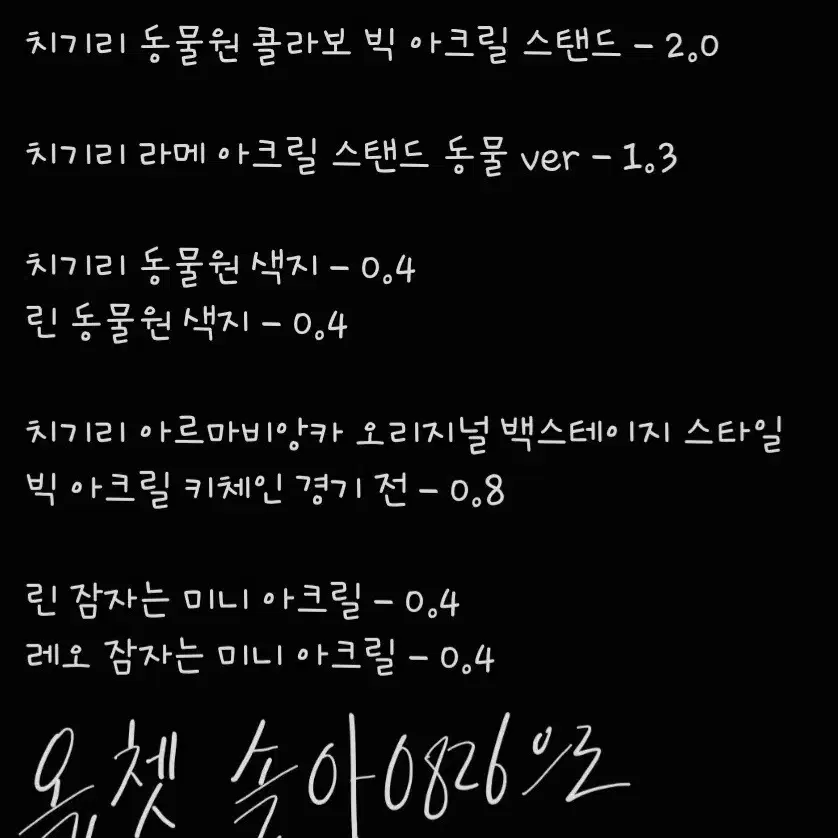 치기리 동물원 콜라보 빅 아크릴 스탠드 - 2.0
치기리 라메 아크릴 스탠드 동물 ver - 1.3
치기리 동물원 색지 - 0.4
린 동물원 색지 - 0.4
치기리 아르마비앙카 오리지널 백스테이지 스타일
빅 아크릴 키체인 경기 전 - 0.8
린 잠자는 미니 아크릴 - 0.4
레오 잠자는 미니 아크릴 - 0.4
옾쳇 솜아0826으로